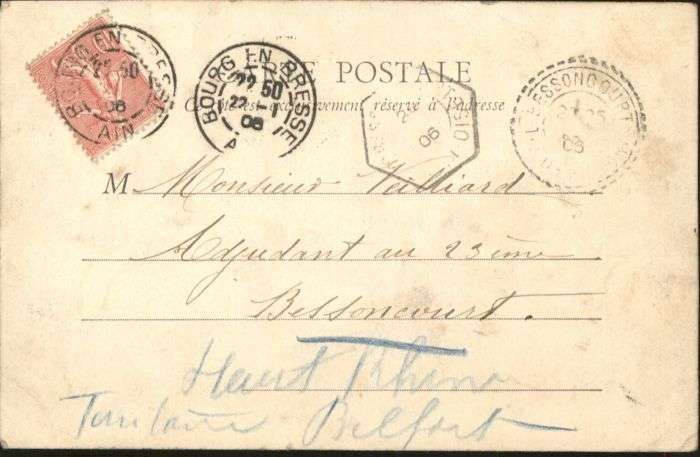 BOURG EN BRESSE
22 50
06
AIN
BOURG EN BRESSE
22 50
22 -1
06
CARTE POSTALE
Ce côté est exclusivement réservé à l'adresse
06
BESSONCOURT
06
M Monsieur Veilliard
Adjudant au 23ème
Bessoncourt.
Haut Rhin
Territoire Belfort